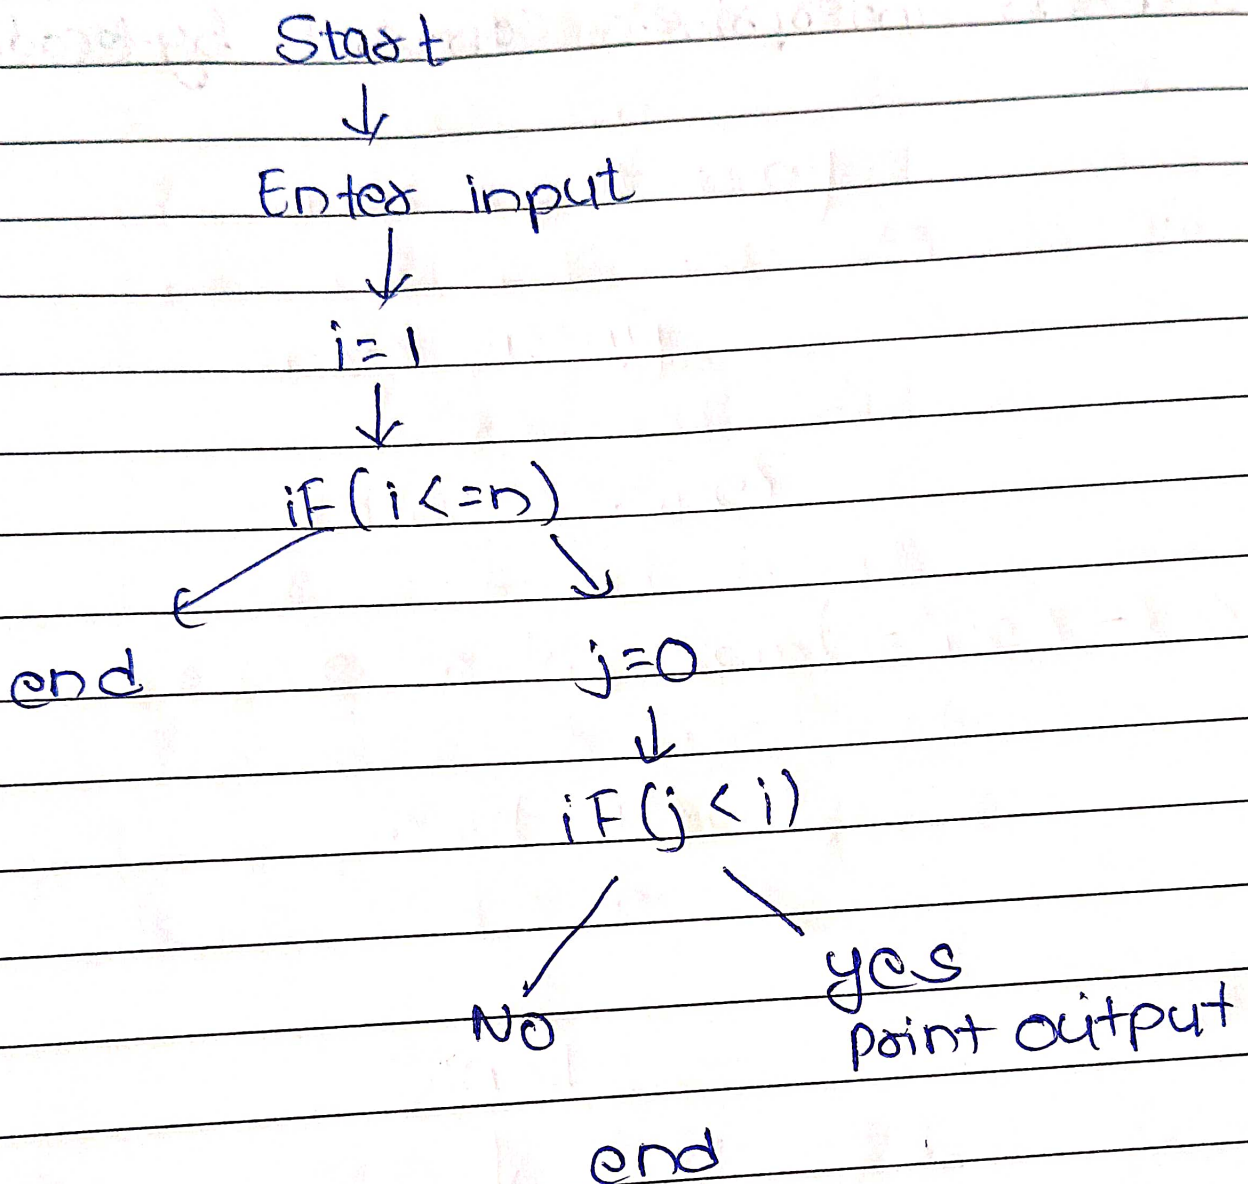 Start
Enter input
i=1
if(i<=n)
end
j=0
if(j<i)
No
yes
print output
end